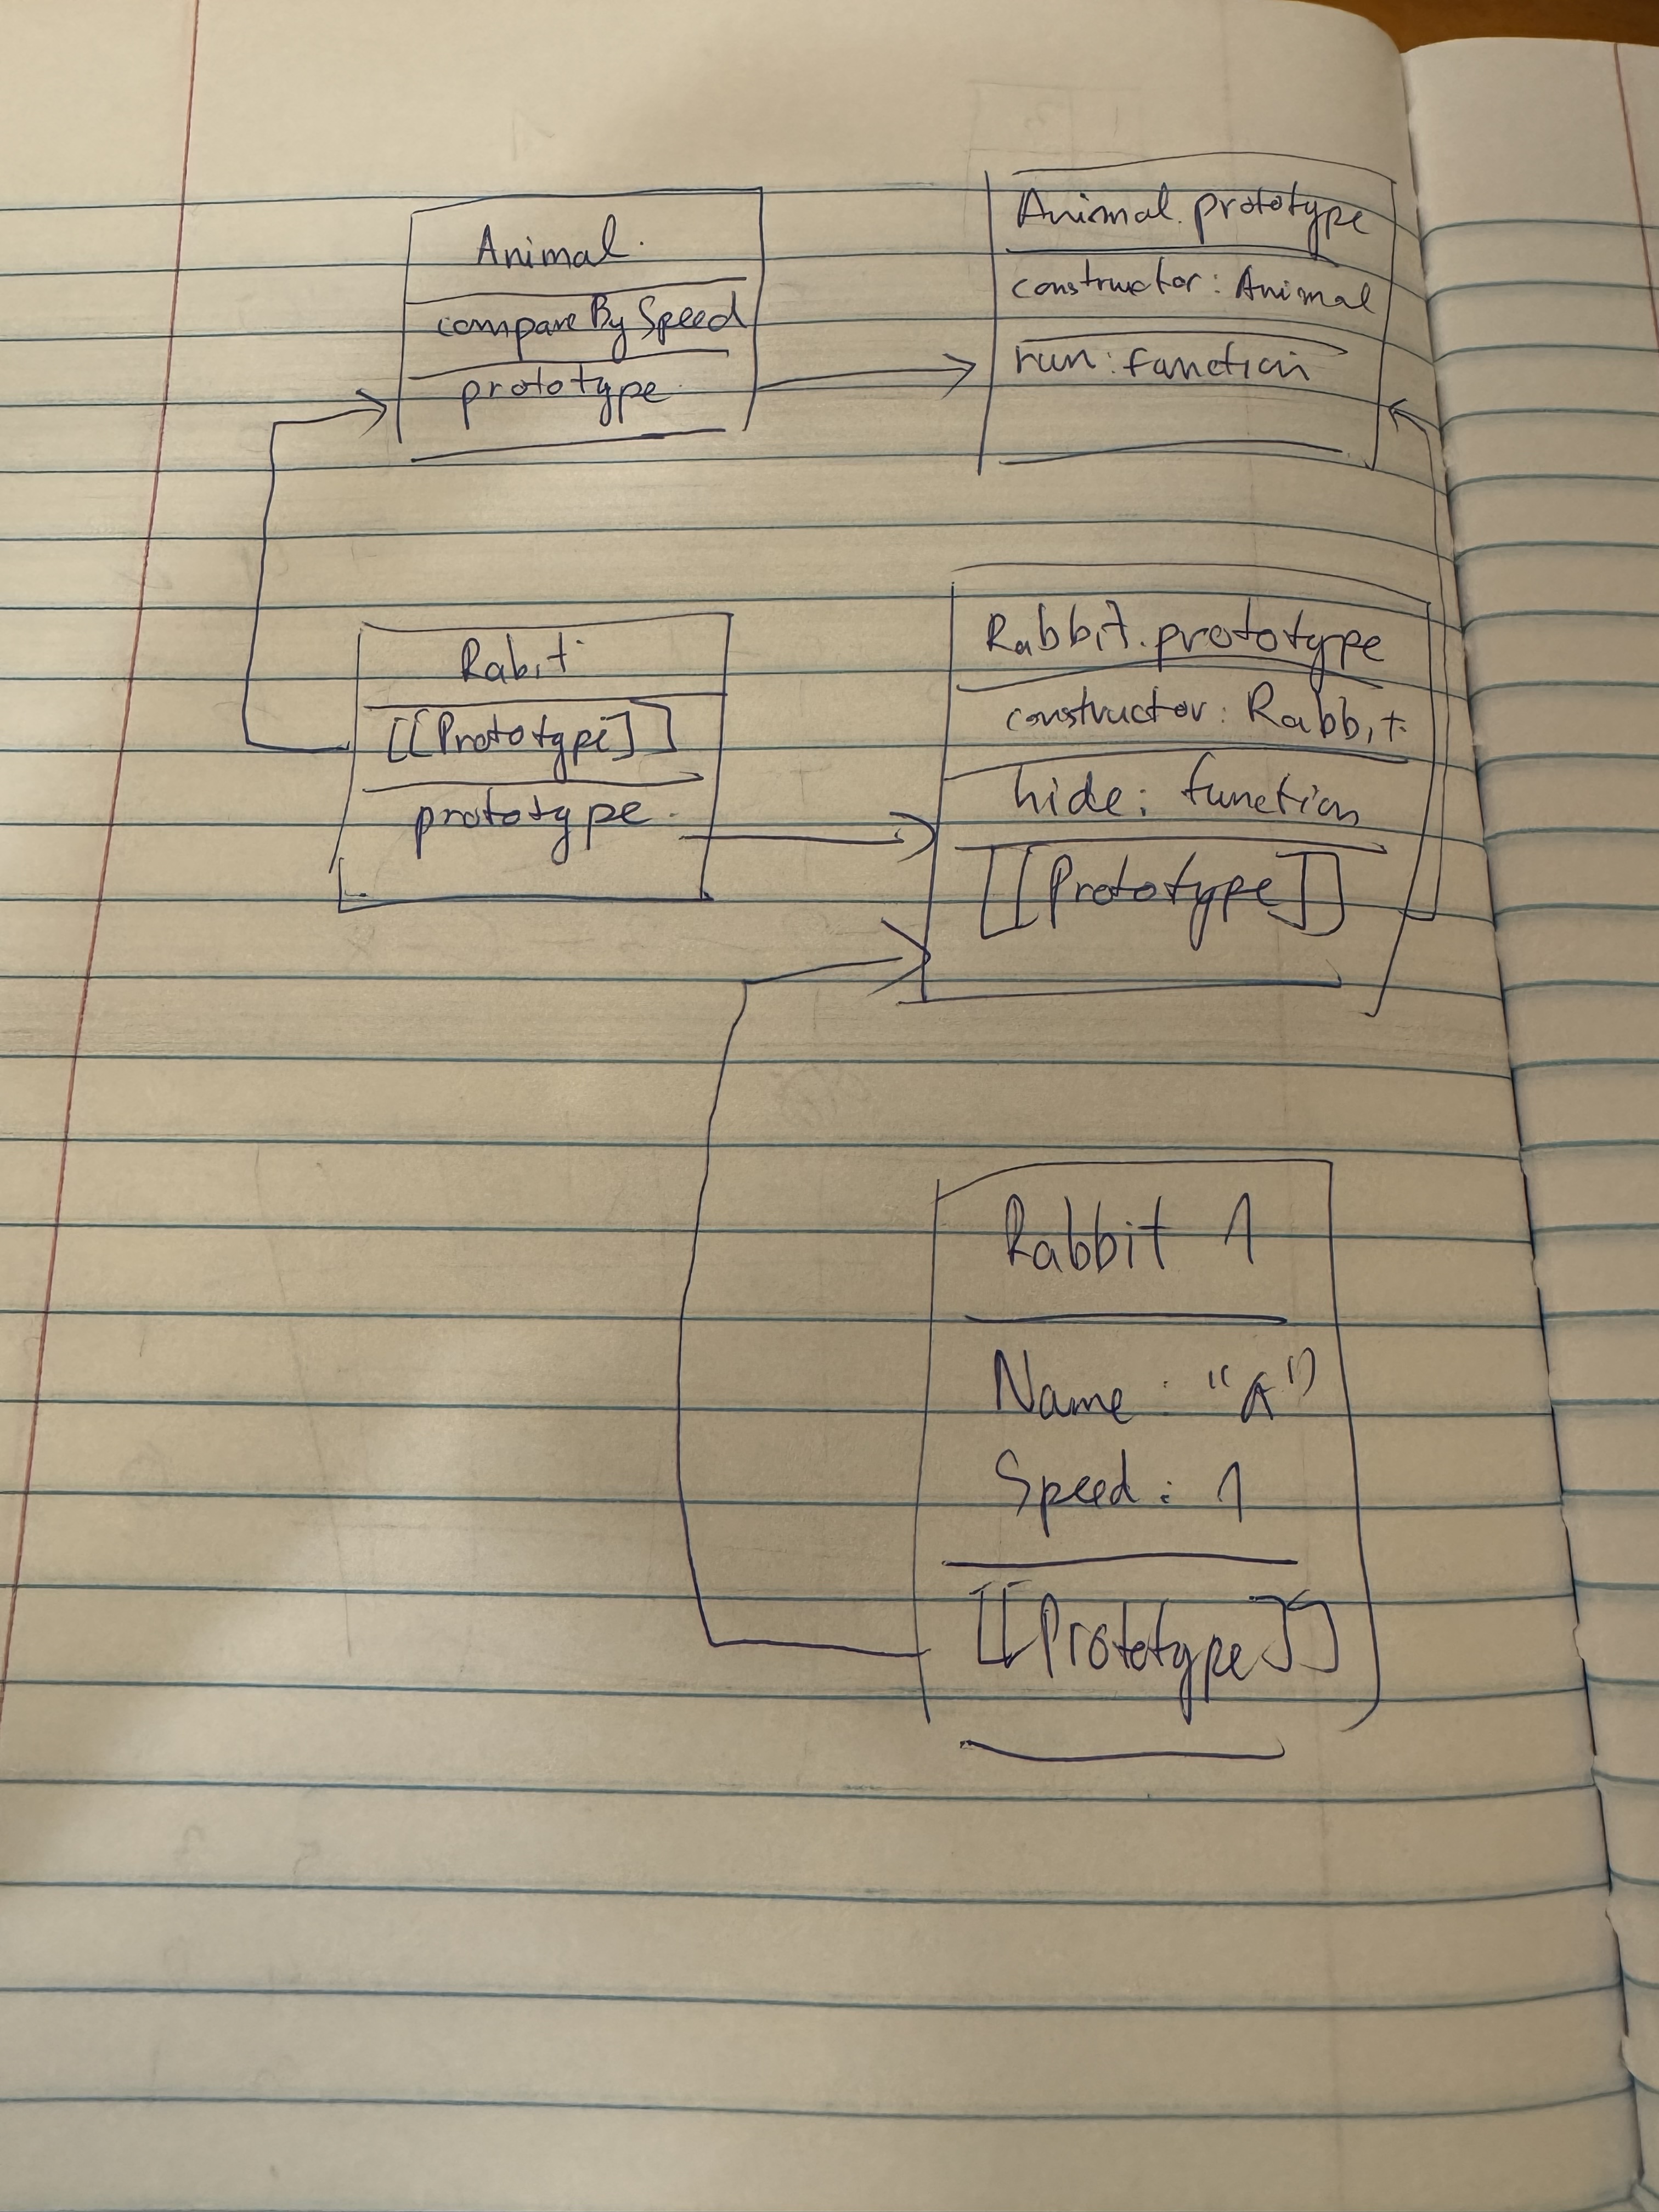 Animal
compareBySpeed
prototype
Animal.prototype
constructor: Animal
run: function
Rabit
[[Prototype]]
prototype
Rabbit.prototype
constructor: Rabbit
hide: function
[[Prototype]]
Rabbit 1
Name: "A"
Speed: 1
[[Prototype]]